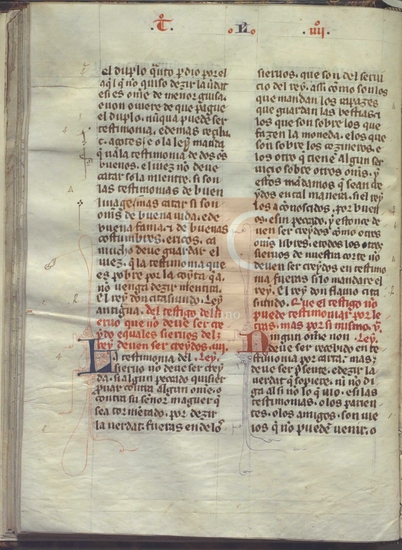 .T. .L. .iiij.
el duplo qnto pdio por el
aql q no quiso dezir la vdat
e si es ome de menor guisa.
e non ouiere de que pague
el duplo. nuqua puede ser
testimonia. e de mas reçiba
.c. açotes. e o la ley manda
q uala testimonia de dos o es
buenos. el iuez no deue
catar sola miente. si son
las testimonias de buen
linage. mas catar si son
oms de buena vida. e de
buena fama. e de buenas
costumbres. e ricos. ca
mucho deue guardar el
iuez. q la testimonia que
es pobre por la coyta q a.
no venga dezir mentira.
el rey don citasundo. Ley
antigua. del testigo del si
eruo que no deue ser cre
ydo e quales sieruos del
rey deuen ser creydos. iiij.
La testimonia del. Ley.
sieruo no deue ser crey
da. si algun pecado quisier
puar contra algun ome. o
contra su señor maguer q
sea tormetado. por dezir
la verdat. fueras ende los
sieruos. que son del serui
cio del rey. assi como son los
que mandan los rapazes
que guardan las bestias. e
los que son sobre los que
fazen la moneda. e los que
son sobre los cozineros. e
los otros q tiene algun ser
uicio sobre otros oms. y
estos madamos q sean cre
ydos en tal manera. si el rey
los a conosçidos. por buen
os. e sin pecado. y estonçe de
uen ser creydos como otros
oms libres. e todos los otros
sieruos de nuestra corte no
deuen ser creydos en testimo
nia fueras si lo mandare el
rey. El rey don flauio cita
sundo. Que el testigo no
puede testimoniar por let
tras. mas por si mismo. v.
Ningun ome non. Ley.
deue ser recebido en tes
timonia por carta. mas
deue ser psente. e dezir la
verdat q sopiere. ni no di
ga al si no lo q uio. e si las
testimonias. o los parien
tes. o los amigos. son uie
ios q no puede venir. o